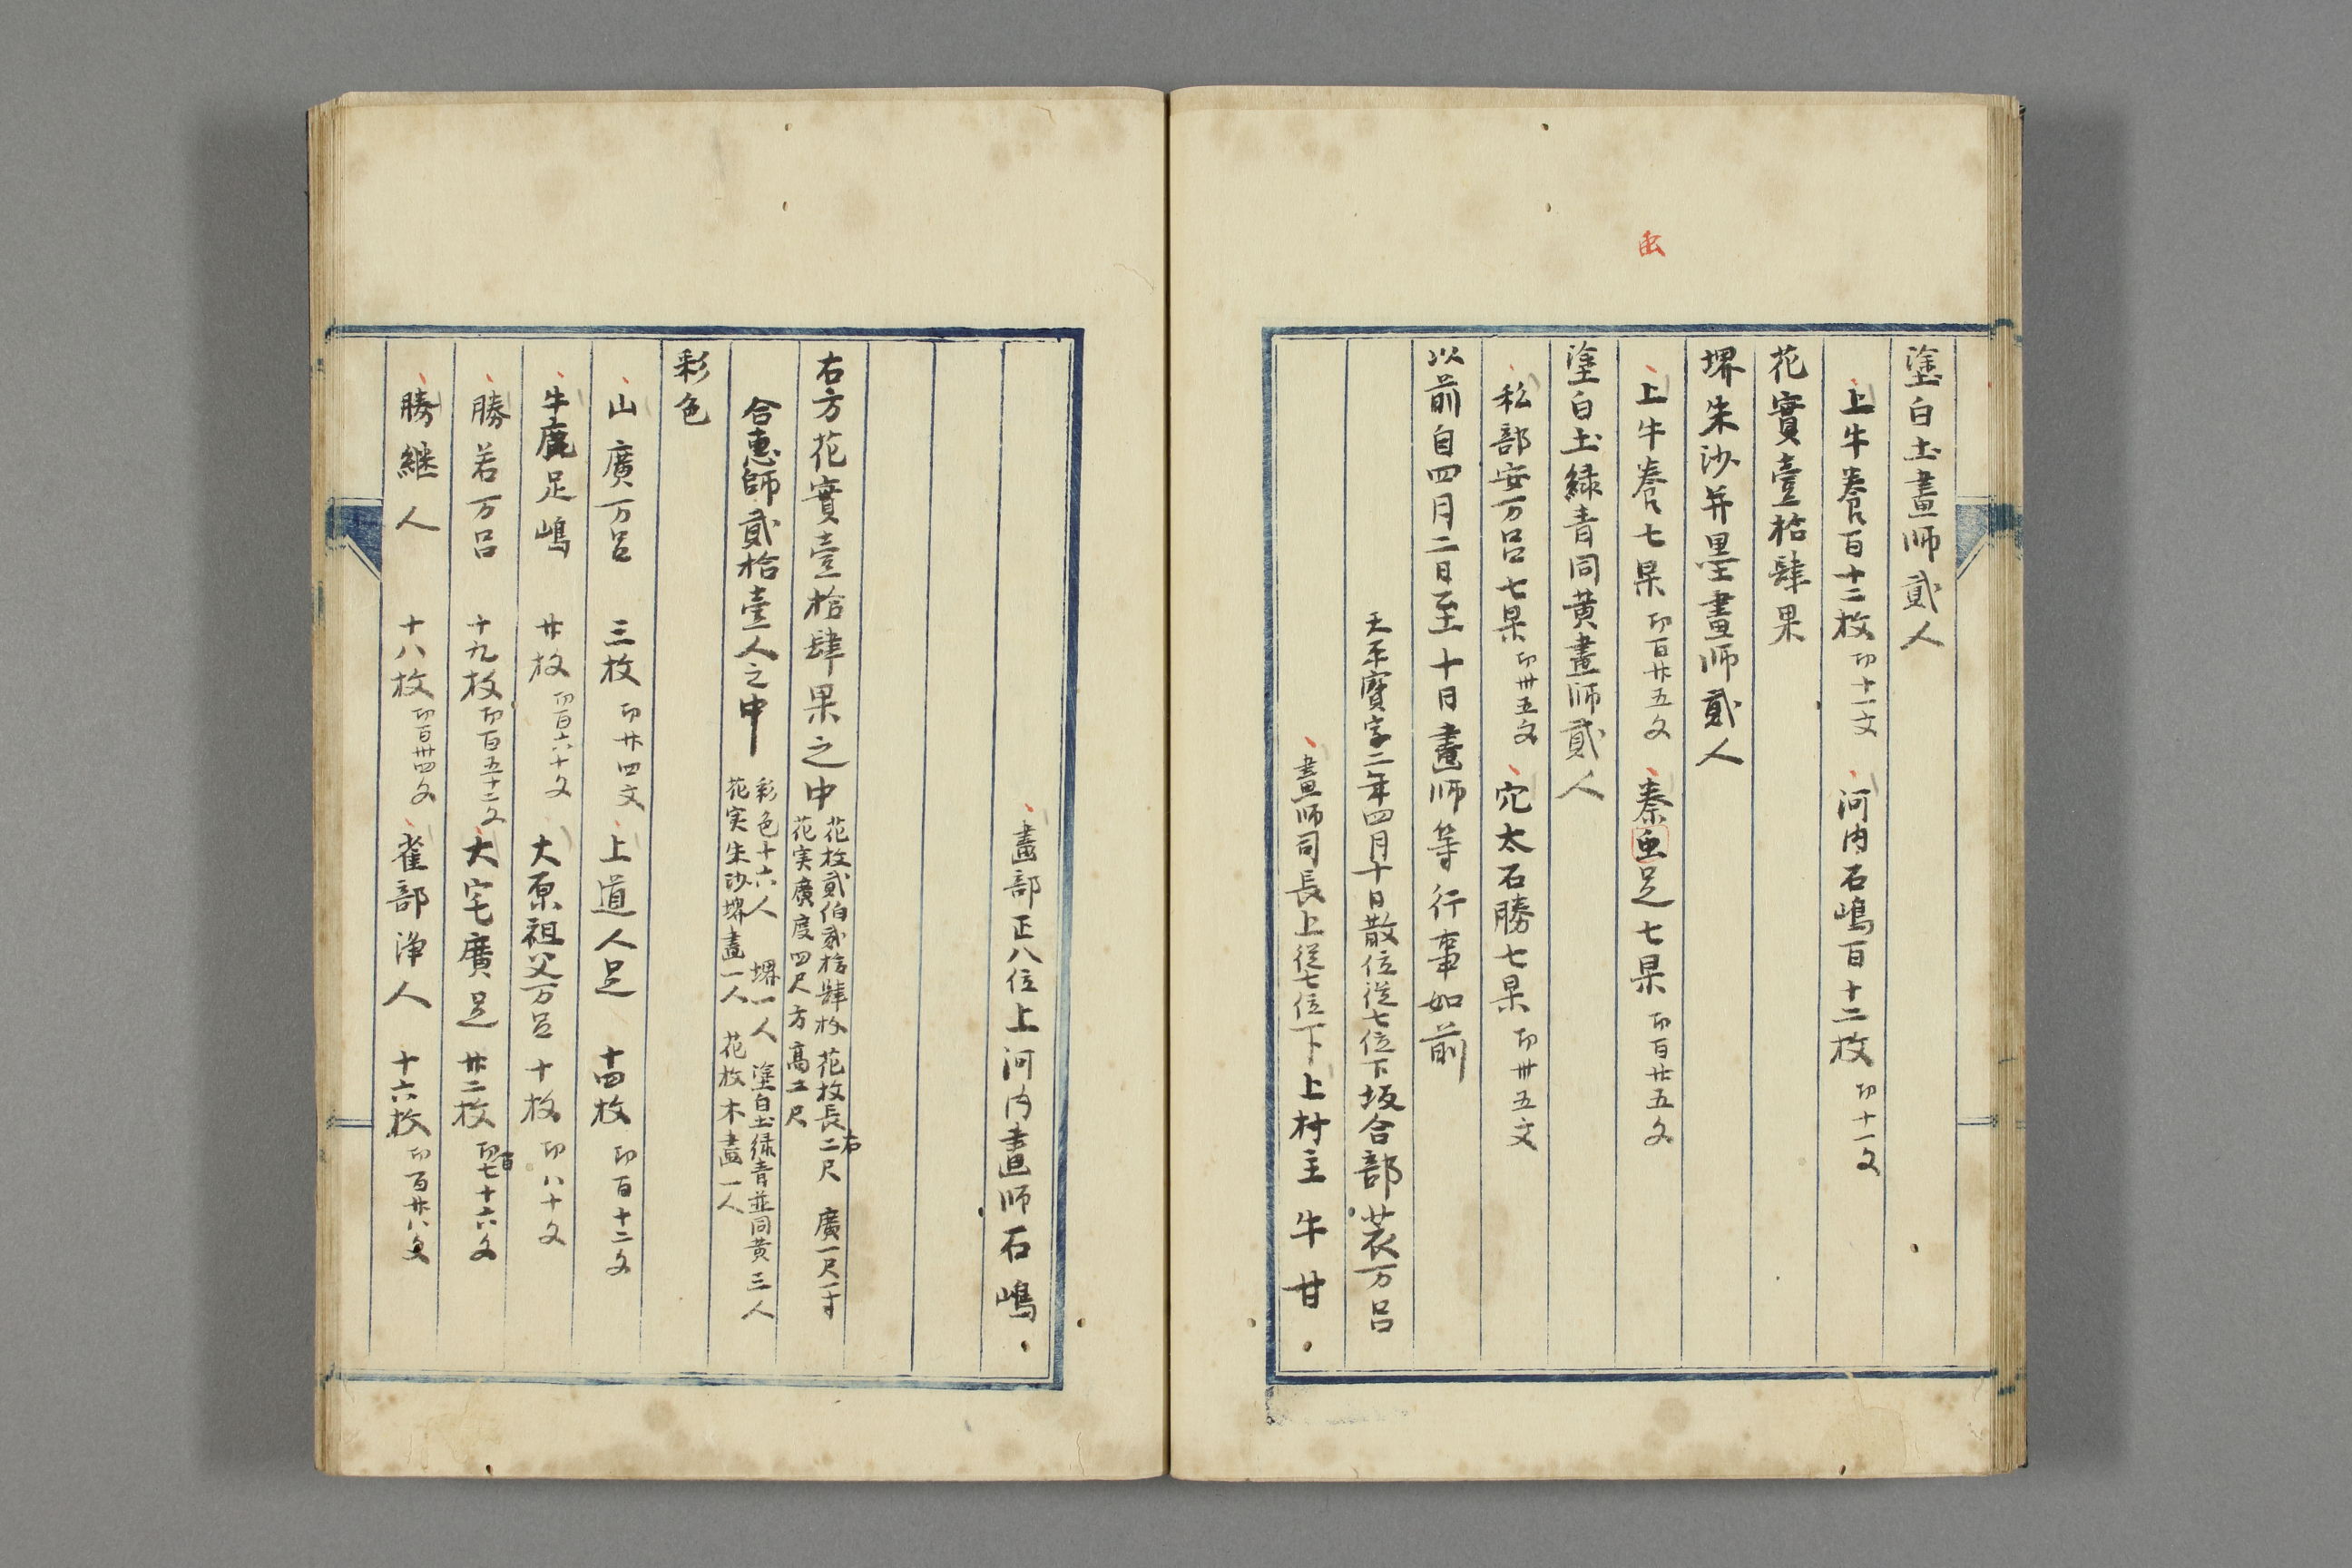 塗白土畫師貳人
上牛養百十二枚 功十一文 河内石嶋百十二枚 功十一文
花實壹拾肆果
堺朱沙并墨畫師貳人
上牛養七果 功百廿五文 秦虫足七果 功百廿五文
虫
塗白土緑青同黄畫師貳人
私部安万呂七果 功卅五文 穴太石勝七果 功卅五文
以前自四月二日至十日畫師等行事如前
天平寶字二年四月十日散位従七位下坂合部蓑万呂
畫師司長上従七位下上村主牛甘
畫部正八位上河内畫師石嶋
右方花實壹拾肆果之中
花枚貳伯貳拾肆枚 花枚長二尺 廣一尺一寸
花実廣度四尺方 高二尺
合恵師貳拾壹人之中
彩色十六人 堺一人 塗白土緑青並同黄三人
花実朱沙堺畫一人 花枚木畫一人
彩色
山廣万呂 三枚 功廿四文 上道人足 十四枚 功百十二文
牛鹿足嶋 廿枚 功百六十文 大原祖父万呂 十枚 功八十文
勝若万呂 十九枚 功百五十二文 大宅廣足 廿二枚 功百七十六文
勝継人 十八枚 功百卌四文 雀部浄人 十六枚 功百廿八文